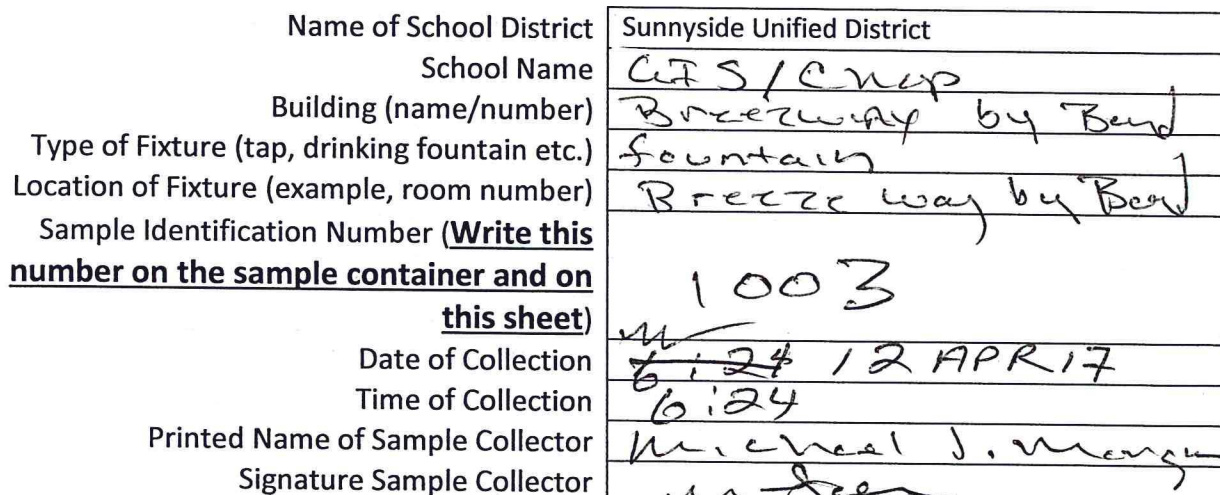 Name of School District Sunnyside Unified District
School Name
Building (name/number) Breezway by Band
Type of Fixture (tap, drinking fountain etc.) fountain
Location of Fixture (example, room number) Breeze way by Band
Sample Identification Number (Write this
number on the sample container and on
this sheet)
1003
Date of Collection 6:24 12 APR 17
Time of Collection 6:24
Printed Name of Sample Collector Michael J.
Signature Sample Collector